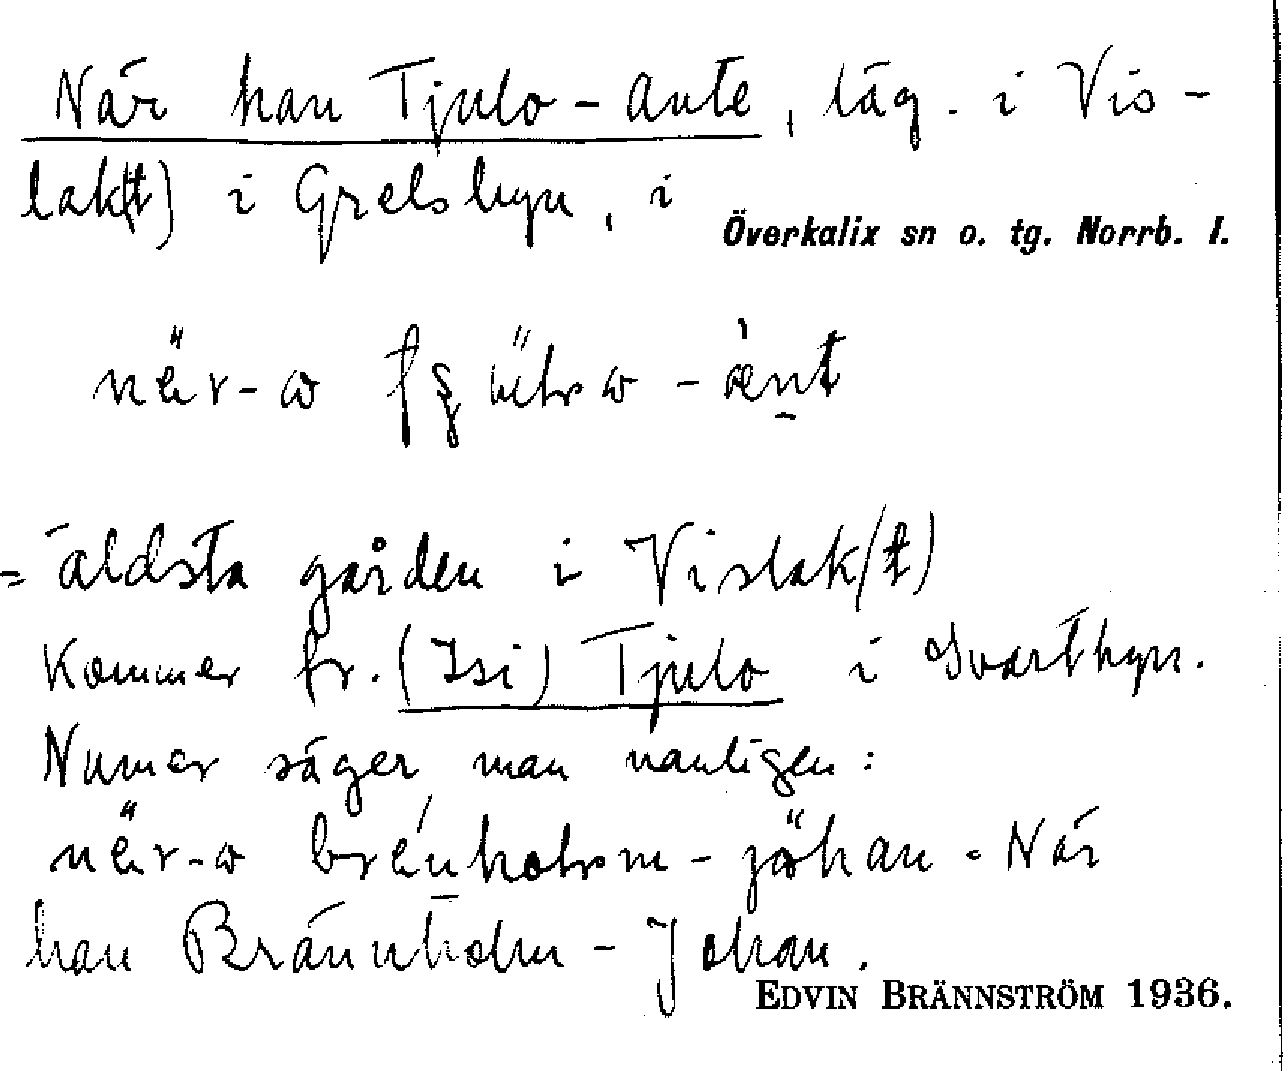 När han Tjulo-Ante, läg. i Vis-
lak(t) i Grelsbyn, i Överkalix sn o. tg. Norrb. l.
= äldsta gården i Vislak(t)
Kommer fr. (Isi) Tjulo i Svartbyn.
Numer säger man vanligen:
när-ω - jöhan = När
han Brännholm-Johan.
EDVIN BRÄNNSTRÖM 1936.